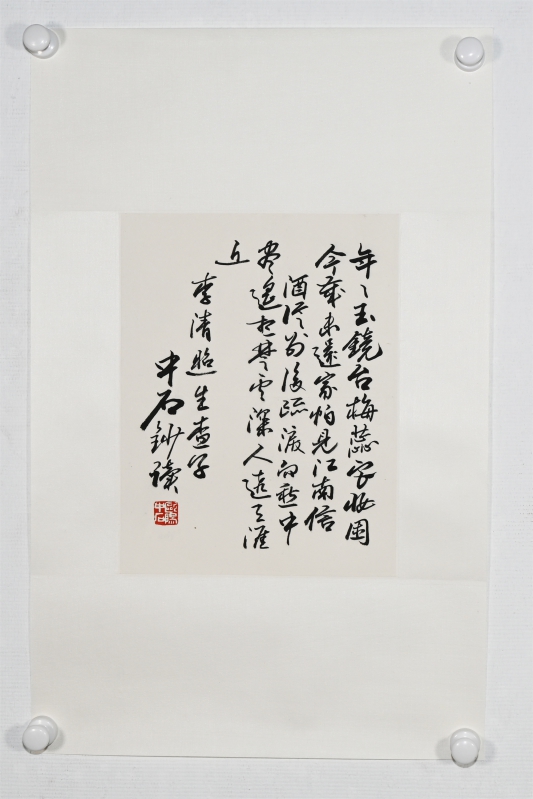 年々玉鏡台梅蕊宮妝困
今歲未還家怕見江南信
酒從別後疏淚向愁中
尽遙想楚雲深人遠天涯
近
李清照生查子
中石鈔讀
歐陽中石